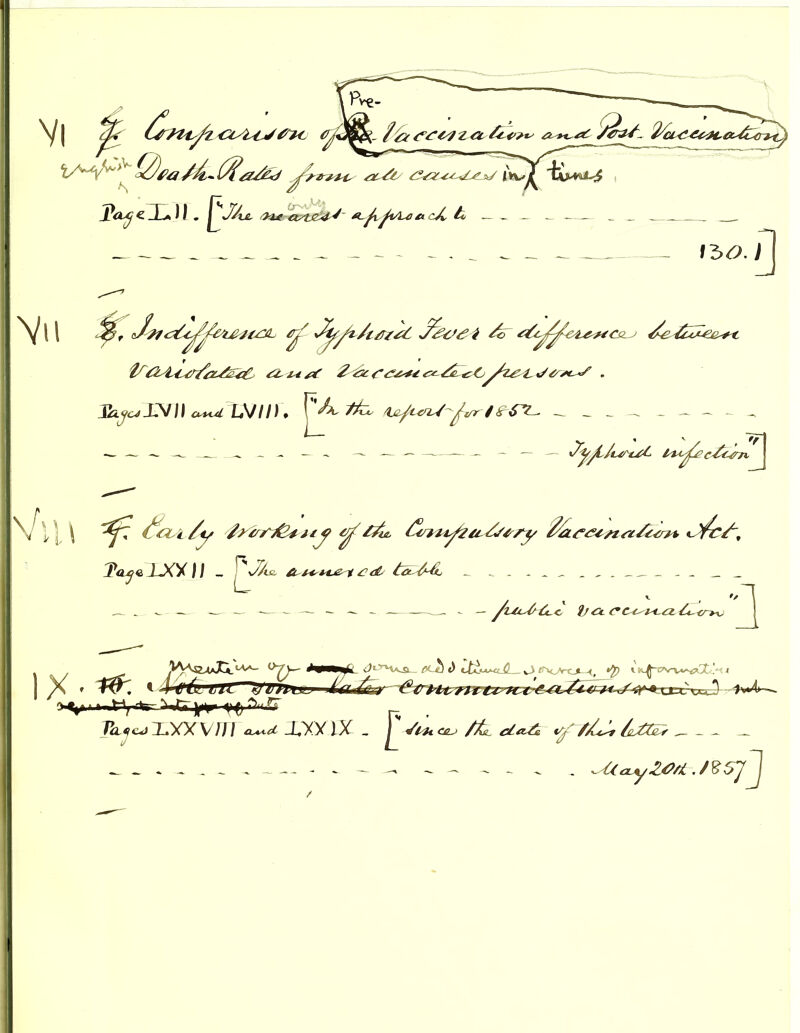 Pre-
VI 7. Comparison of Vaccination and Post-Vaccination
English Death-Rates from all causes in times
only
Page LII. ["The nearest approach to — — — — — —
— — — — — — — — — — 130.1]
VII 8. Indifference of Typhoid Fever to difference between
variolated and vaccinated persons.
Pages LVII and LVIII. ["In the report for 1852 — — — — —
— — — — — — — — — — Typhoid infection"]
VIII 9. Early working of the Compulsory Vaccination Act.
Page LXXII - ["The annexed table — — — — — —
— — — — — — — — — — public vaccination"]
Mention of some some additional sources of information
IX. 10. Note on some later communications received sub-
sequently to date
Pages LXXVIII and LXXIX - ["since the date of this letter — — — —
— — — — — — — — — — May 20th. 1857]